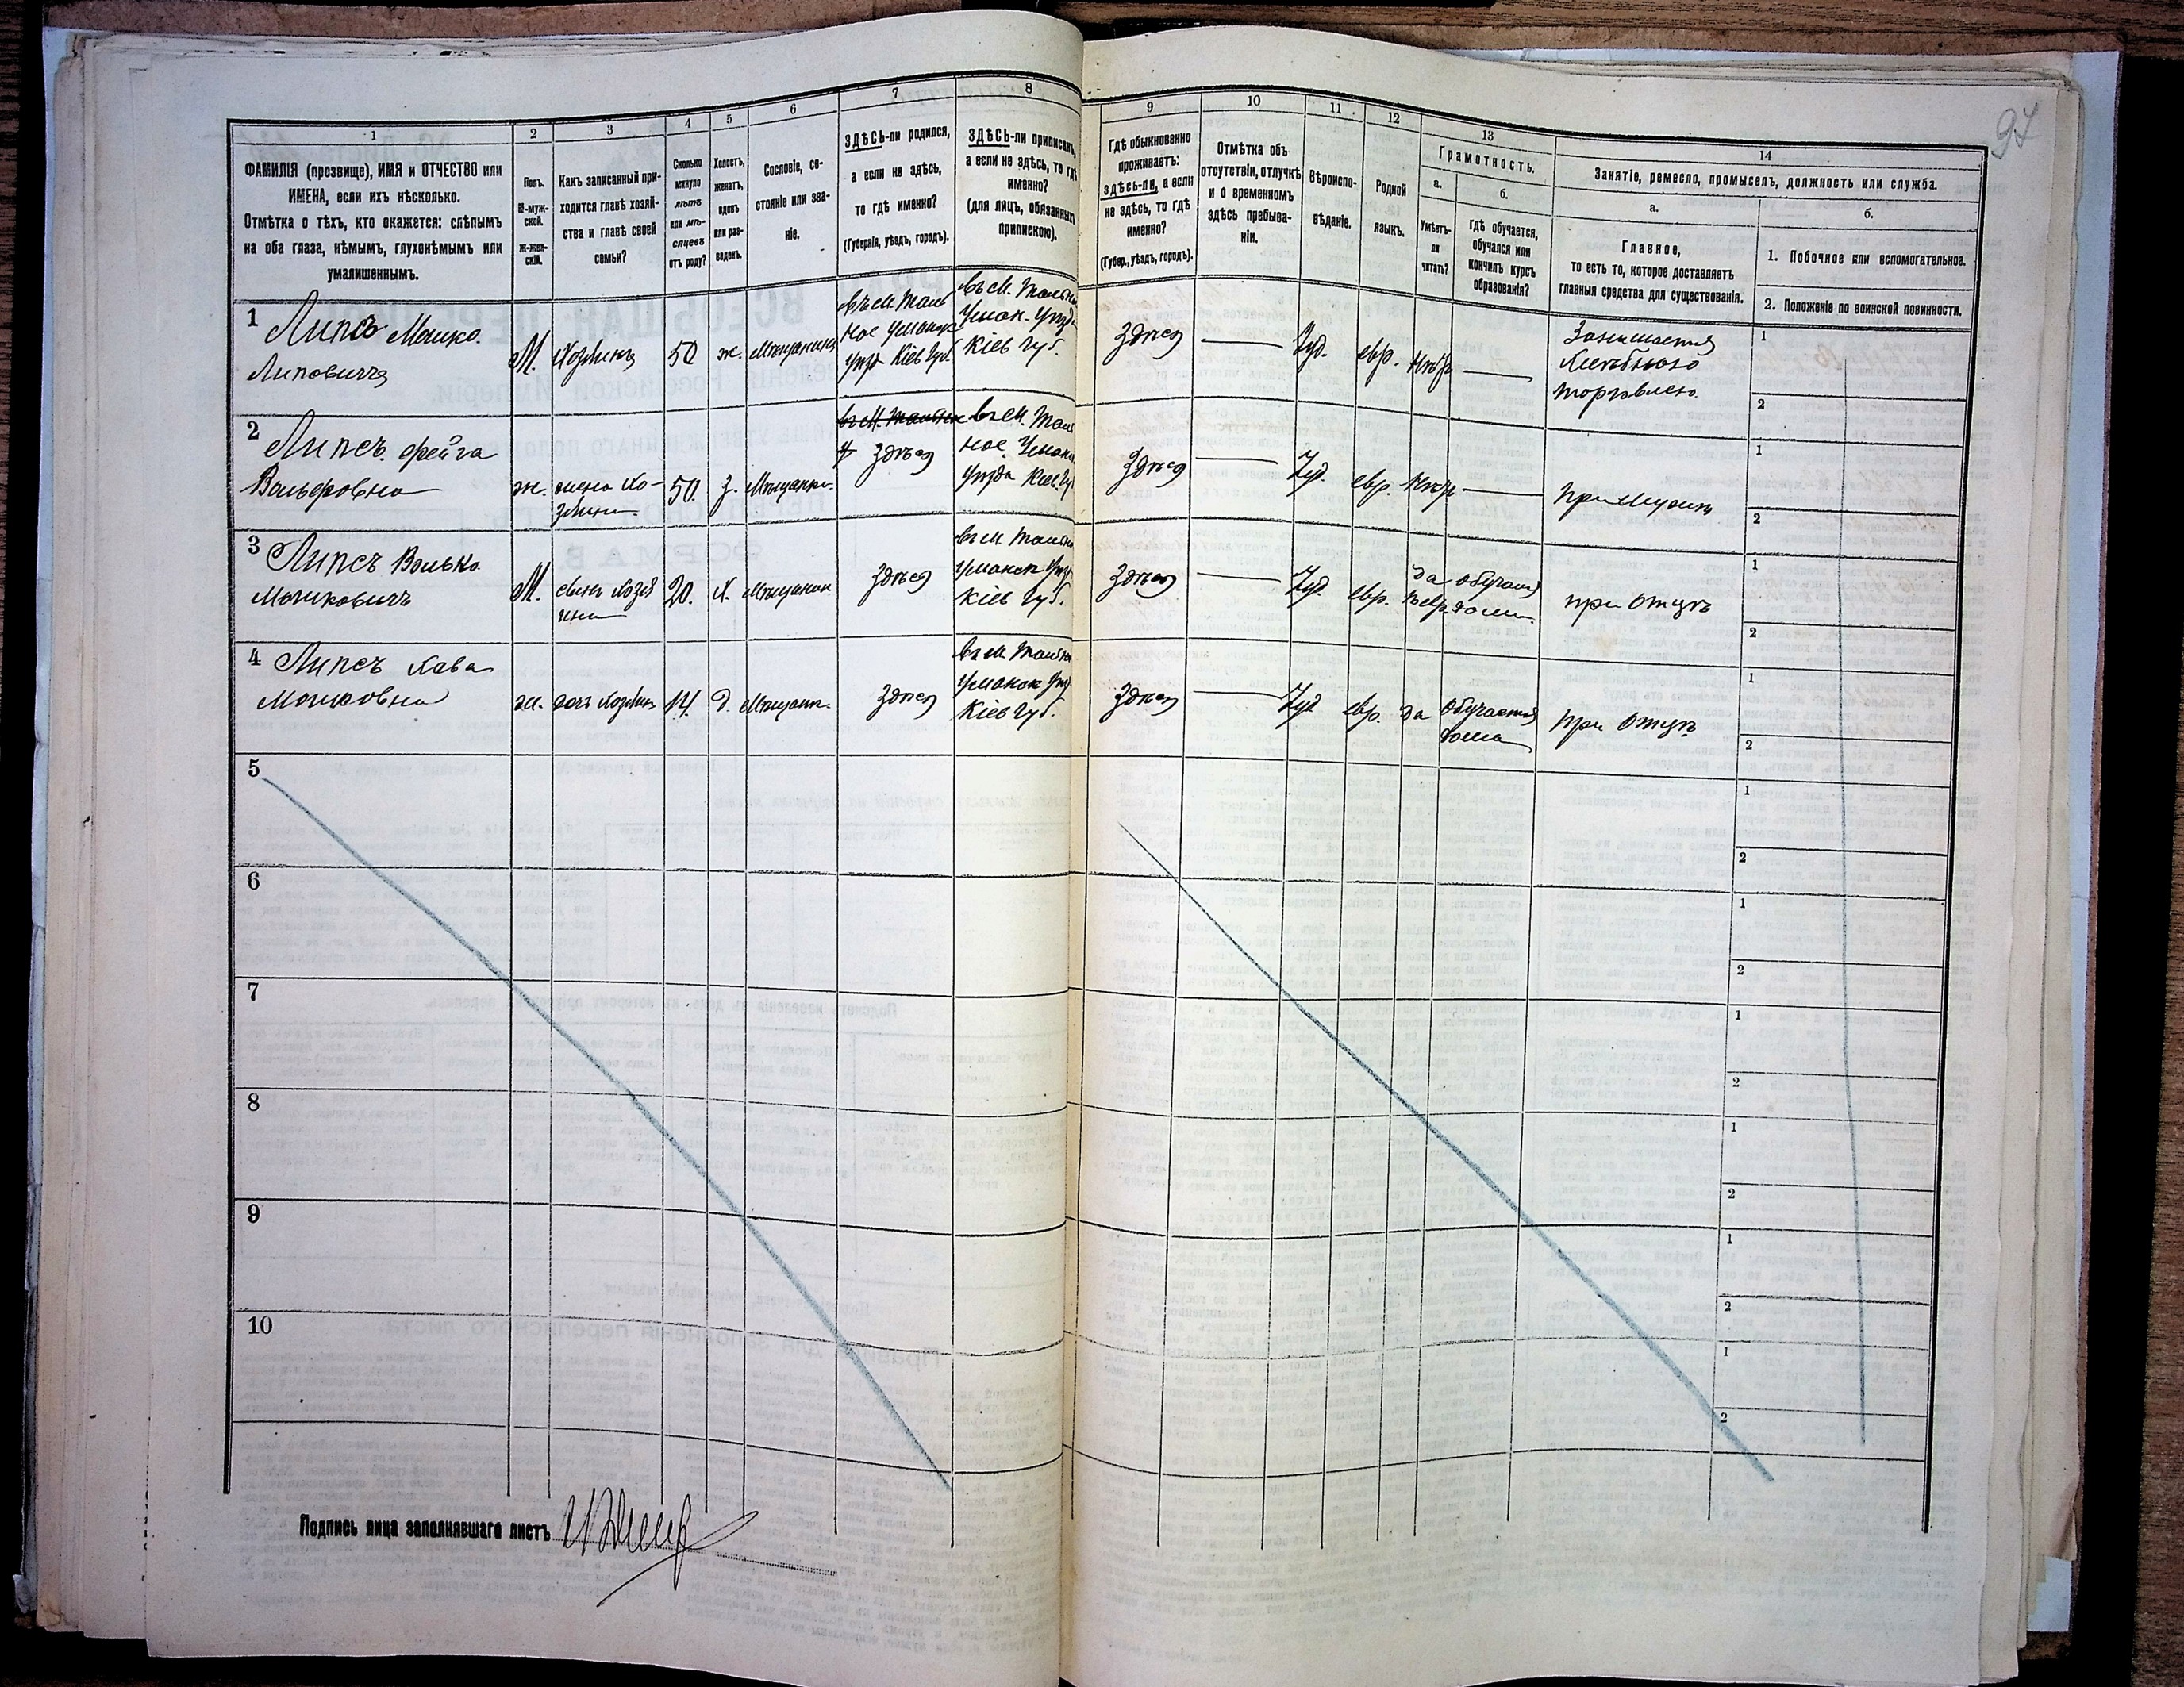 97
1
2
3
4
5
6
7
8
9
10
11
12
13
14
ФАМИЛІЯ (прозвище), ИМЯ и ОТЧЕСТВО или
ИМЕНА, если ихъ нѣсколько.
Отмѣтка о тѣхъ, кто окажется: слѣпымъ
на оба глаза, нѣмымъ, глухонѣмымъ или
умалишеннымъ.
Полъ.
М-муж-
ской.
Ж-жен-
скій.
Какъ записанный при-
ходится главѣ хозяй-
ства и главѣ своей
семьи?
Сколько
минуло
лѣтъ
или мѣ-
сяцевъ
отъ роду?
Холостъ,
женатъ,
вдовъ
или раз-
веденъ.
Сословіе, со-
стояніе или зва-
ніе.
ЗДѢСЬ-ли родился,
а если не здѣсь,
то гдѣ именно?
(Губернія, уѣздъ, городъ).
ЗДѢСЬ-ли приписанъ,
а если не здѣсь, то гдѣ
именно?
(для лицъ, обязанныхъ
припискою).
Гдѣ обыкновенно
проживаетъ:
здѣсь-ли, а если
не здѣсь, то гдѣ
именно?
(Губер., уѣздъ, городъ).
Отмѣтка объ
отсутствіи, отлучкѣ
и о временномъ
здѣсь пребыва-
ніи.
Вѣроиспо-
вѣданіе.
Родной
языкъ.
Грамотность.
а.
Умѣетъ-
ли
читать?
б.
Гдѣ обучается,
обучался или
кончилъ курсъ
образованія?
Занятіе, ремесло, промыселъ, должность или служба.
а.
Главное,
то есть то, которое доставляетъ
главныя средства для существованія.
б.
1. Побочное или вспомогательное.
2. Положеніе по воинской повинности.
1 Липсъ Мошко.
Липовичъ
М.
Хозяинъ
50
ж.
Мѣщанинъ
въ м. Таль
ное Уманск
уѣз. Кіев Губ.
въ м. Тальн
Уман. Уѣзд
Кіев Губ.
Здѣсь
Іуд.
евр.
Нѣтъ
Занимается
Хлѣбною
торговлею.
1
2
2 Липсъ. Фейга
Вольфовна
ж.
жена Хо-
зяина
50.
З.
Мѣщанка.
въ м. Тальн
Здѣсь
въ м. Таль
ное. Уманс
уѣзда Кіев. Гу
Здѣсь
Іуд.
евр.
Нѣтъ
при Мужѣ
1
2
3 Липсъ Волько
Мошковичъ
М.
сынъ Хозя
ина
20.
Х.
Мѣщанин
Здѣсь
въ м. Тальн
Уманск Уѣз
Кіев Губ.
Здѣсь
Іуд
евр.
да
обучался
дома.
при Отцѣ
1
2
4 Липсъ Хава
Мошковна
ж.
дочь Хозяина
14.
д.
Мѣщанк.
Здѣсь
въ м Тальн
Уманск Уѣз
Кіев Губ.
Здѣсь
Іуд
евр.
да
Обучается
дома
при Отцѣ
1
2
5
1
2
6
1
2
7
1
2
8
1
2
9
1
2
10
1
2
Подпись лица заполнявшаго листъ